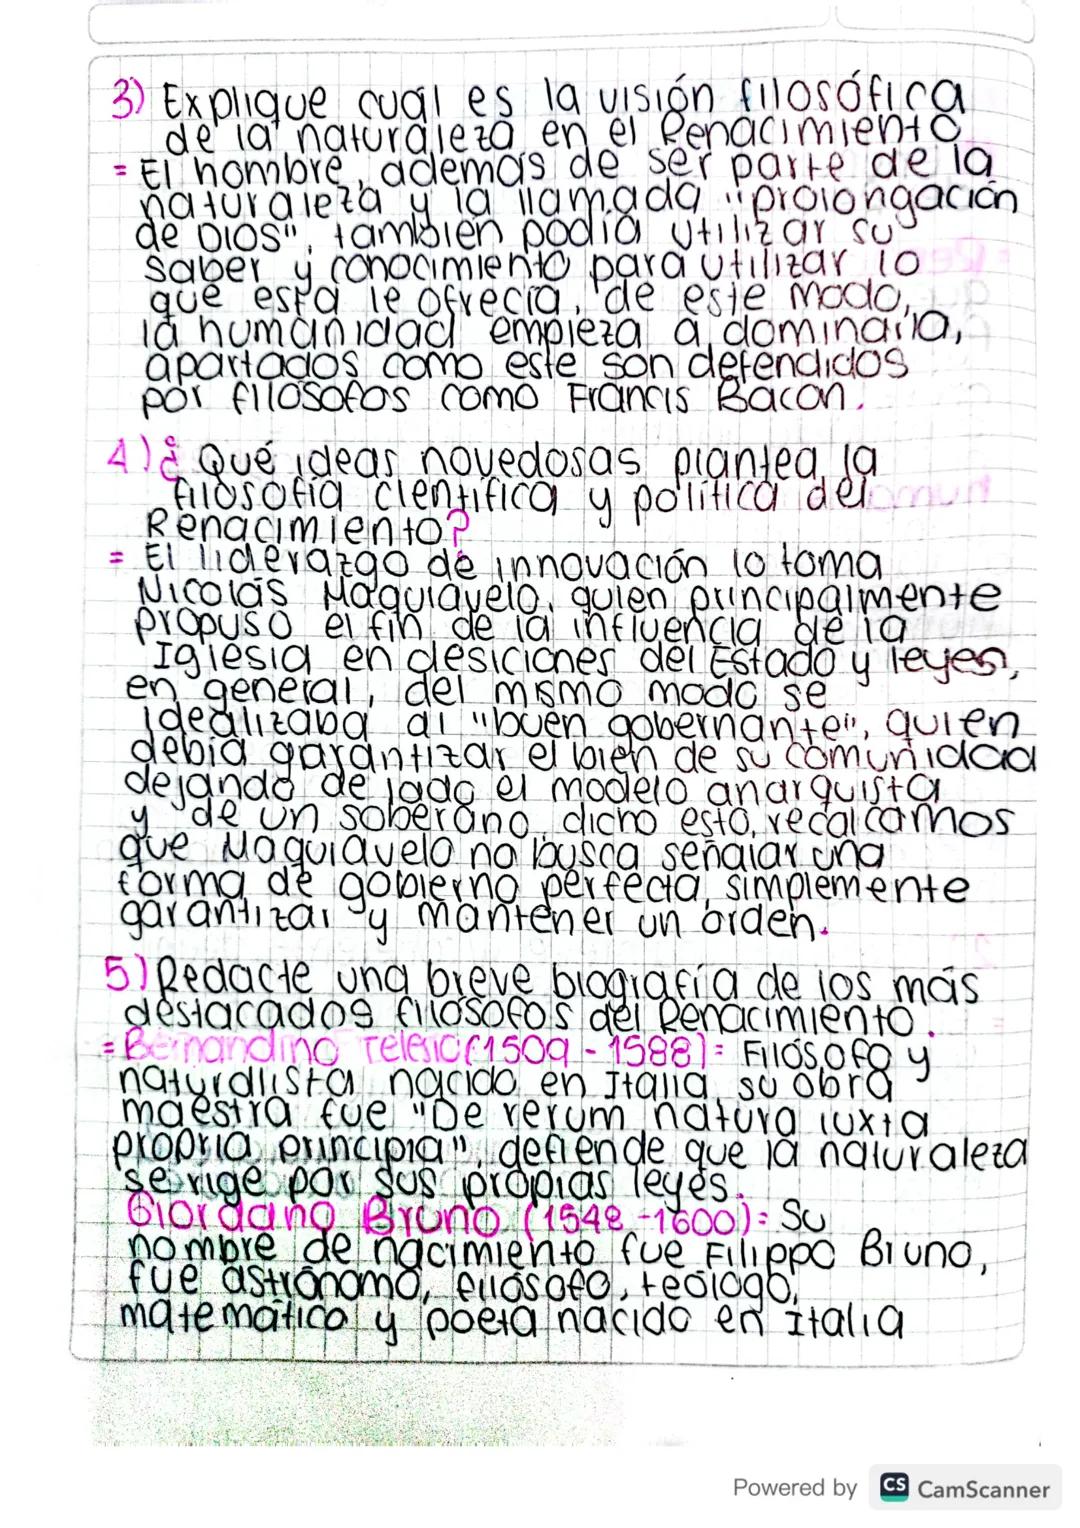 3) Explique cuál es la visión filosófica
de la naturaleza en el Renacimiento
= El hombre, además de ser parte de la
naturaleza y la llamada "prolongación
de Dios", también podía utilizar su
saber y conocimiento para utilizar lo
que esta le ofrecía, de este modo,
la humanidad empieza a dominarla,
apartados como este son defendidos
por filósofos como Francis Bacon.
4) ¿Qué ideas novedosas plantea la
filosofía científica y política del
Renacimiento?
= El liderazgo de innovación lo toma
Nicolás Maquiavelo, quien principalmente
propuso el fin de la influencia de la
Iglesia en desiciones del Estado y leyes,
en general, del mismo modo se
idealizaba al "buen gobernante", quien
debía garantizar el bien de su comunidad
dejando de lado el modelo anarquista
y de un soberano, dicho esto, recalcamos
que Maquiavelo no busca señalar una
forma de gobierno perfecta, simplemente
garantizar y mantener un orden.
5) Redacte una breve biografía de los más
destacados filósofos del Renacimiento.
= Bernandino Telesio (1509 - 1588): Filósofo y
naturalista nacido en Italia, su obra
maestra fue "De rerum natura iuxta
propria principia", defiende que la naturaleza
se rige por sus propias leyes.
Giordano Bruno (1548 - 1600): Su
nombre de nacimiento fue Filippo Bruno,
fue astrónomo, filósofo, teólogo,
matemático y poeta nacido en Italia
Powered by CS CamScanner